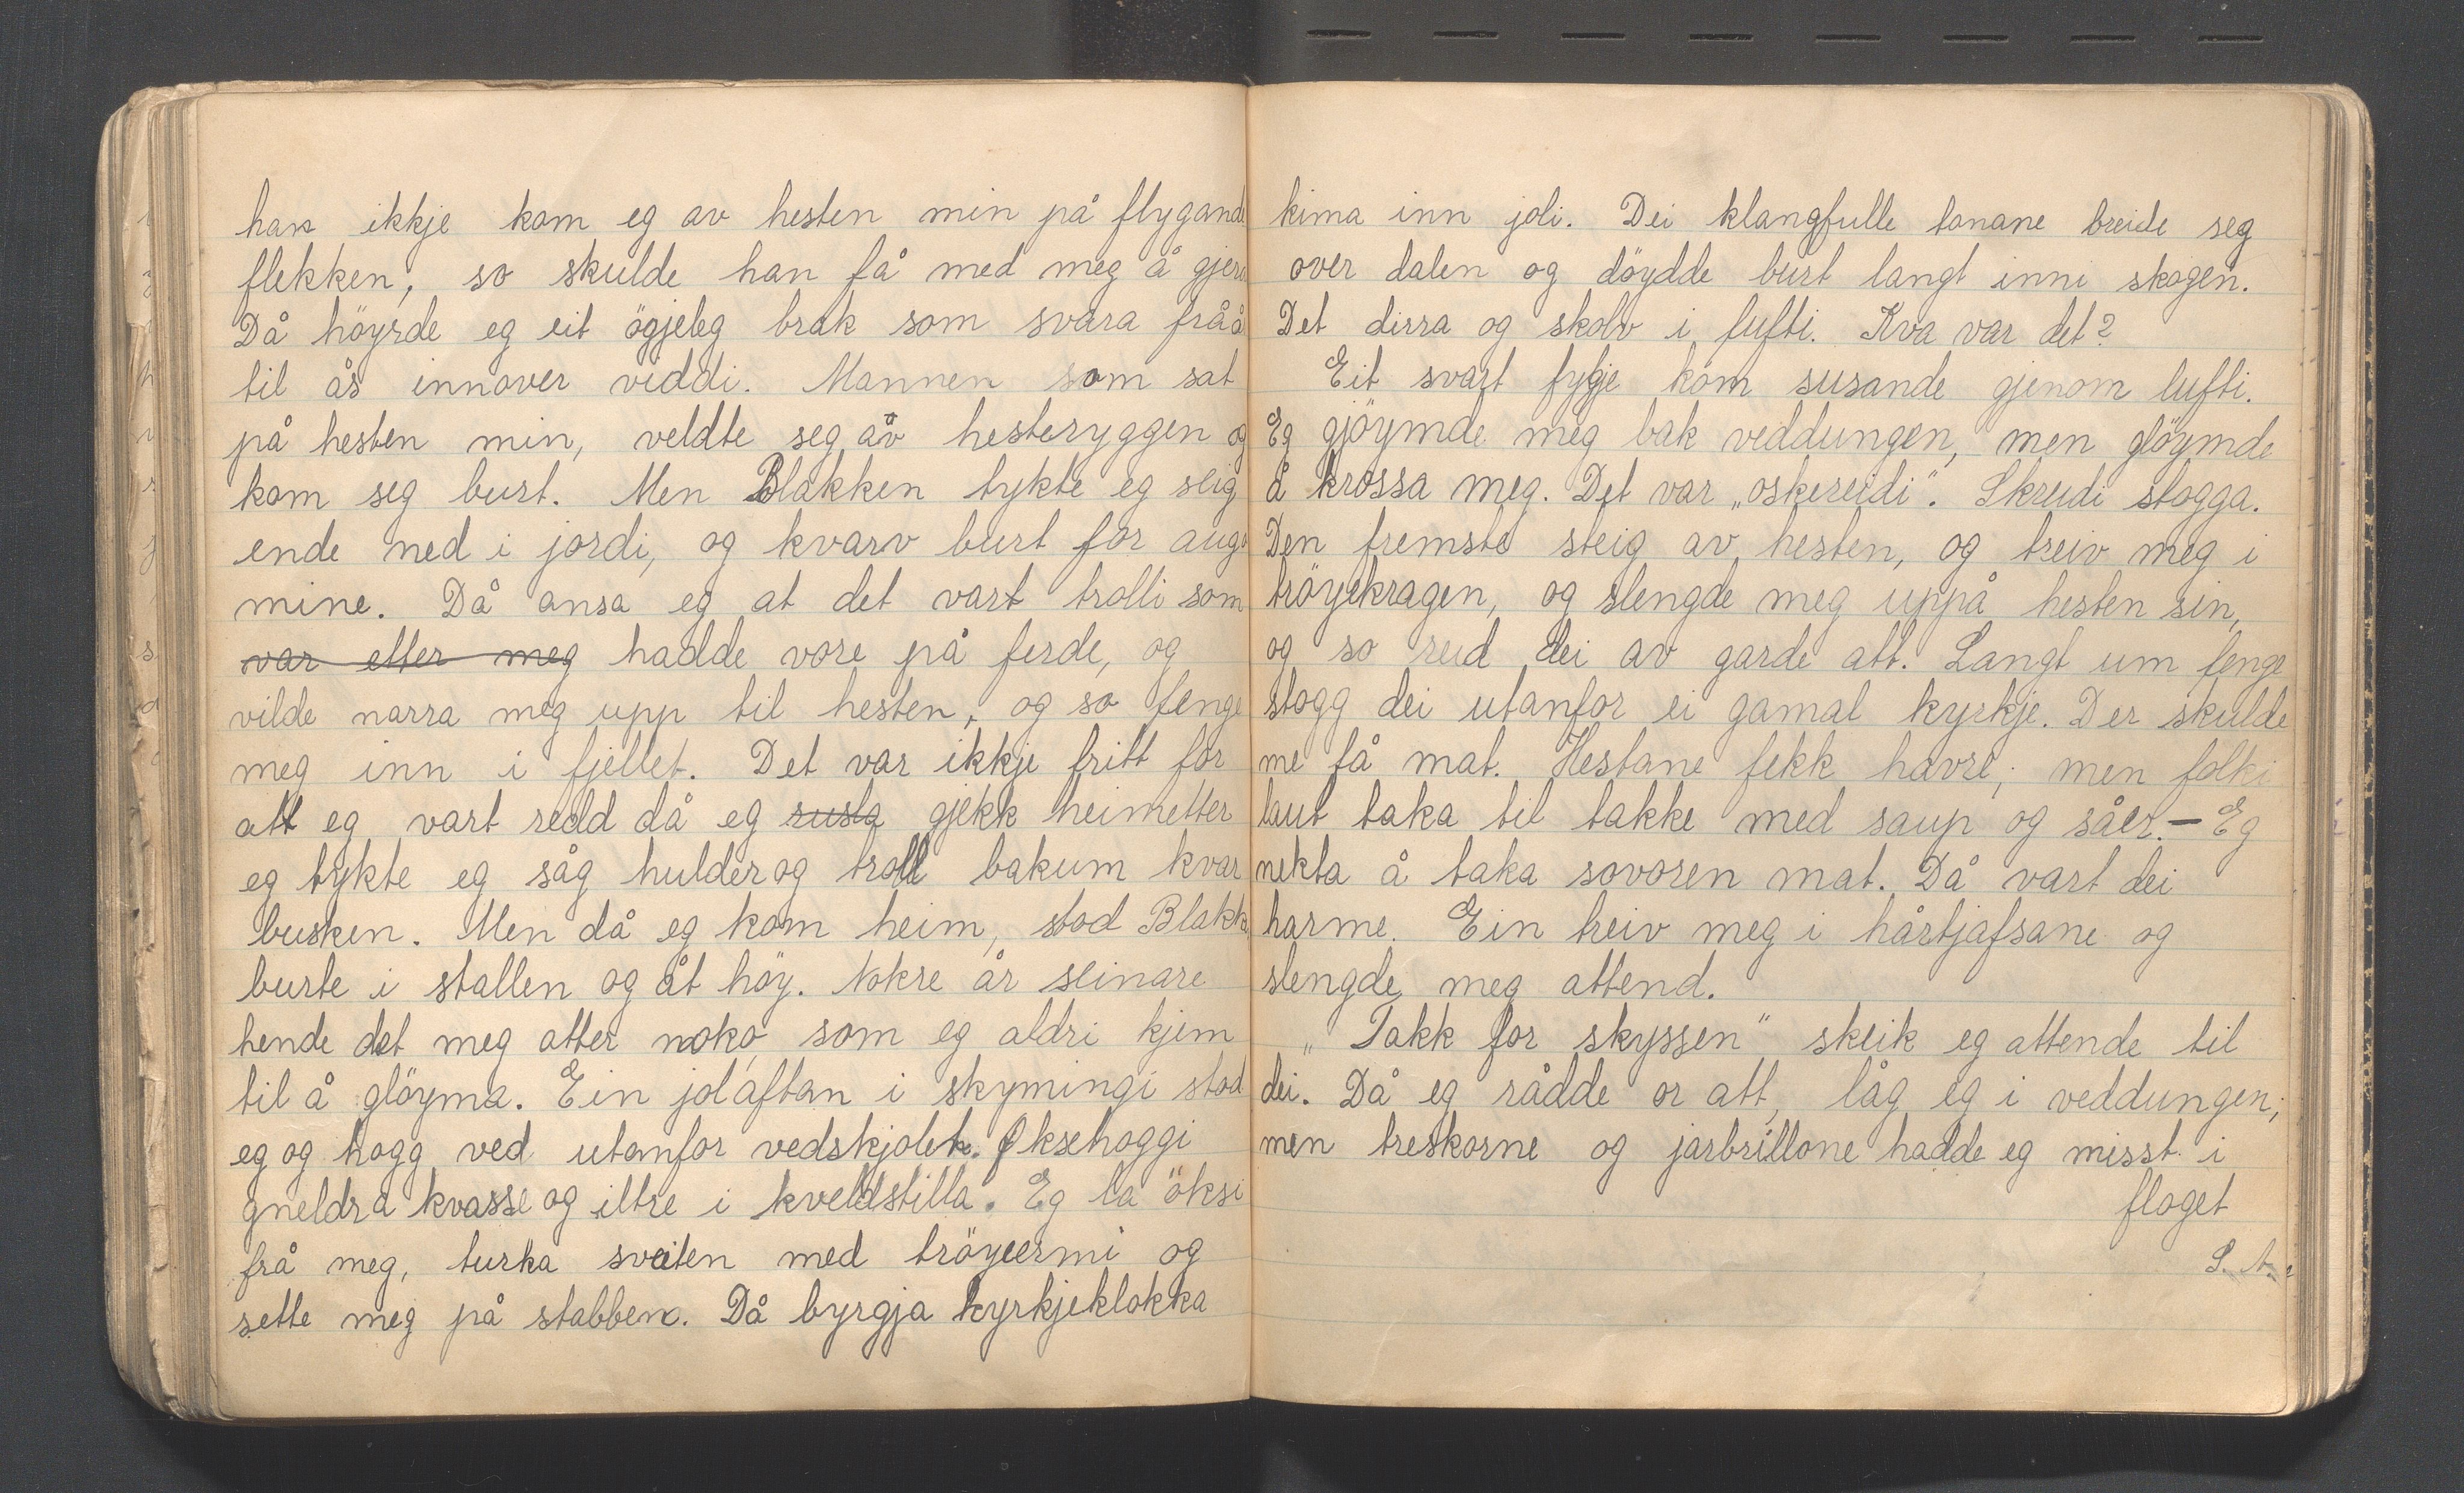 han ikkje kom eg av hesten min på flygande
flekken, so skulde han få med meg å gjera
Då höyrde eg eit ögjeleg brak som svara frå å
til ås innover viddi. Mannen som sat
på hesten min, veldte seg av hesteryggen og
kom seg burt. Men Blakken tykte eg seig
ende ned i jordi, og kvarv burt for augo
mine. Då ansa eg at det vart trolli som
var etter meg hadde vore på ferde, og
vilde narra meg upp til hesten, og so fenge
meg inn i fjellet. Det var ikkje fritt for
att eg vart redd då eg rusla gjekk heimetter
eg tykte eg såg hulder og troll bakum kvar
busken. Men då eg kom heim, stod Blakk
burte i stallen og åt höy. Nokre år seinare
hende det meg atter noko som eg aldri kjem
til å glöyma. Ein jolaftan i skymingi stod
eg og hogg ved utanfor vedskjolet. Øksehoggi
gneldra kvasse og iltre i kveldstilla. Eg la öksi
frå meg, turka sveiten med tröyeermi og
sette meg på stabben. Då byrgja kyrkjeklokka
kima inn joli. Dei klangfulle tonane breide seg
over dalen og döydde burt langt inni skogen.
Det dirra og skolv i lufti. Kva var det?
Eit svart fylgje kom susande gjenom lufti.
Eg gjöymde meg bak veddungen, men glöymde
å krossa meg. Det var „oskereidi". Skreidi stogga.
Den fremste steig av hesten, og treiv meg i
tröyekragen, og slengde meg uppå hesten sin,
og so reid dei av garde att. Langt um lenge
stogg dei utanfor ei gamal kyrkje. Der skulde
me få mat. Hestane fekk havre, men folki
laut taka til takke med saup og såer. - Eg
nekta å taka sovoren mat. Då vart dei
harme. Ein treiv meg i hårtjafsane og
slengde meg attend.
„Takk for skyssen" skeik eg attende til
dei. Då eg rådde or att, låg eg i veddungen;
men treskorne og jarbrillone hadde eg misst i
floget
S. A.